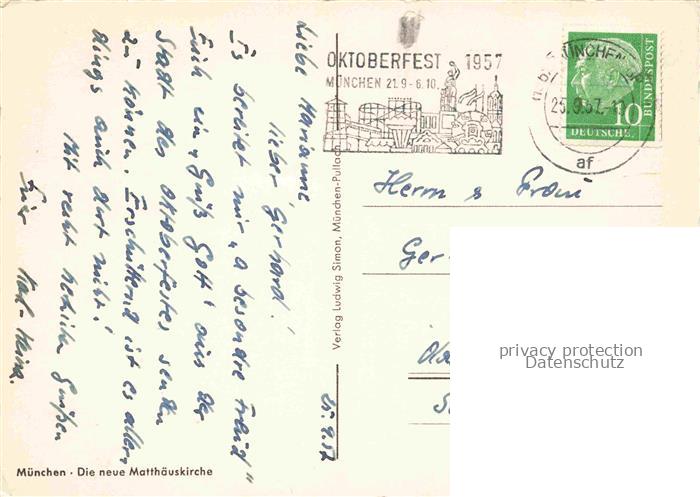 25.9.57
Liebe Marianne
lieber Gerhard!
Es bereitet mir „a besondre Freud"
Euch ein „Grüß Gott" aus der
Stadt des Oktoberfestes senden
zu können. Erschütternd ist es aller-
dings auch dort nicht!
Mit recht herzlichen Grüßen
Euer Karl-Heinz.
München · Die neue Matthäuskirche
Verlag Ludwig Simon, München-Pullach
OKTOBERFEST 1957
MÜNCHEN 21.9-6.10.
MÜNCHEN
25.9.57.-
af
10
DEUTSCHE
BUNDESPOST
Herrn & Frau
Ger
privacy protection
Datenschutz